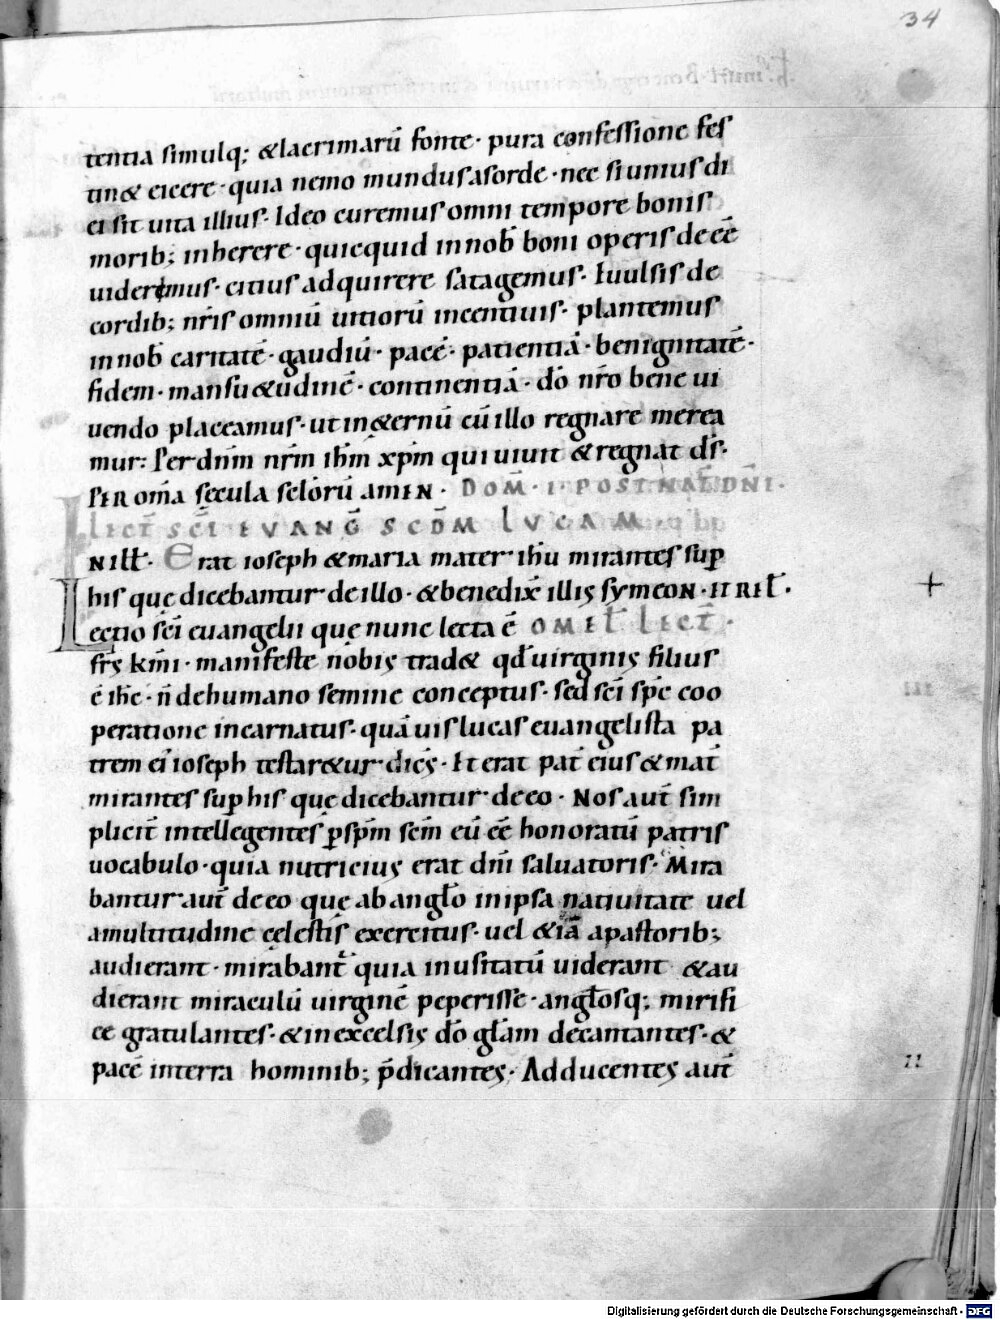 34
tentia simulq; &lacrimarū fonte· pura confessione fes
tin& eicere· quia nemo mundus a sorde· nec si unius di
ei sit uita illius· Ideo curemus omni tempore bonis
morib; inherere· quicquid in nob̄ boni operis de eē
uiderimus· citius adquirere satagemus· Euulsis de
cordib; nr̄is omniū uitiorū incentiuis· plantemus
in nob̄ caritatē· gaudiū· pacē· patientiā· benignitatē·
fidem· mansu&udinē· continentiā· dō nr̄o bene ui
uendo placeamus· ut in &ernū cū illo regnare merea
mur: Per dn̄m nr̄m ih̄m xp̄m qui uiuit & regnat ds̄·
PER om̄a secula sclōrū AMEN· DOM̄· I· POST NAT̄ DN̄I·
LECT̄ SC̄I EVANḠ SCD̄M LVCAM
N ill̄t· Erat ioseph & maria mater ih̄u mirantes sup̄
his quę dicebantur de illo· & benedix̄ illis symeon· ET REL̄·
Lectio sc̄i euangelii quę nunc lecta ē OMEL̄ LECT̄·
frs̄ km̄i· manifeste nobis trad& qd̄ uirginis filius
ē ih̄c· n̄ de humano semine conceptus· sed sc̄i sp̄c coo
peratione incarnatus· quā uis lucas euangelista pa
trem ei ioseph testar&ur dicęs· Et erat pat̄ eius & mat̄
mirantes sup̄ his quę dicebantur de eo· Nos aut̄ sim
plicit̄ intellegentes p̄ sp̄m sc̄m eū eē honoratū patris
uocabulo· quia nutricius erat dn̄i saluatoris· Mira
bantur aut̄ de eo quę ab anglo in ipsa natiuitate uel
a multitudine cęlestis exercitus· uel &iā a pastorib;
audierant· mirabant̄ quia inusitatū uiderant & au
dierant miraculū uirginē peperisse· anglosq; mirifi
ce gratulantes· & in excelsis dō glām decantantes· &
pacē in terra hominib; p̄dicantes· Adducentes aut̄
+
III
II
Digitalisierung gefördert durch die Deutsche Forschungsgemeinschaft - DFG